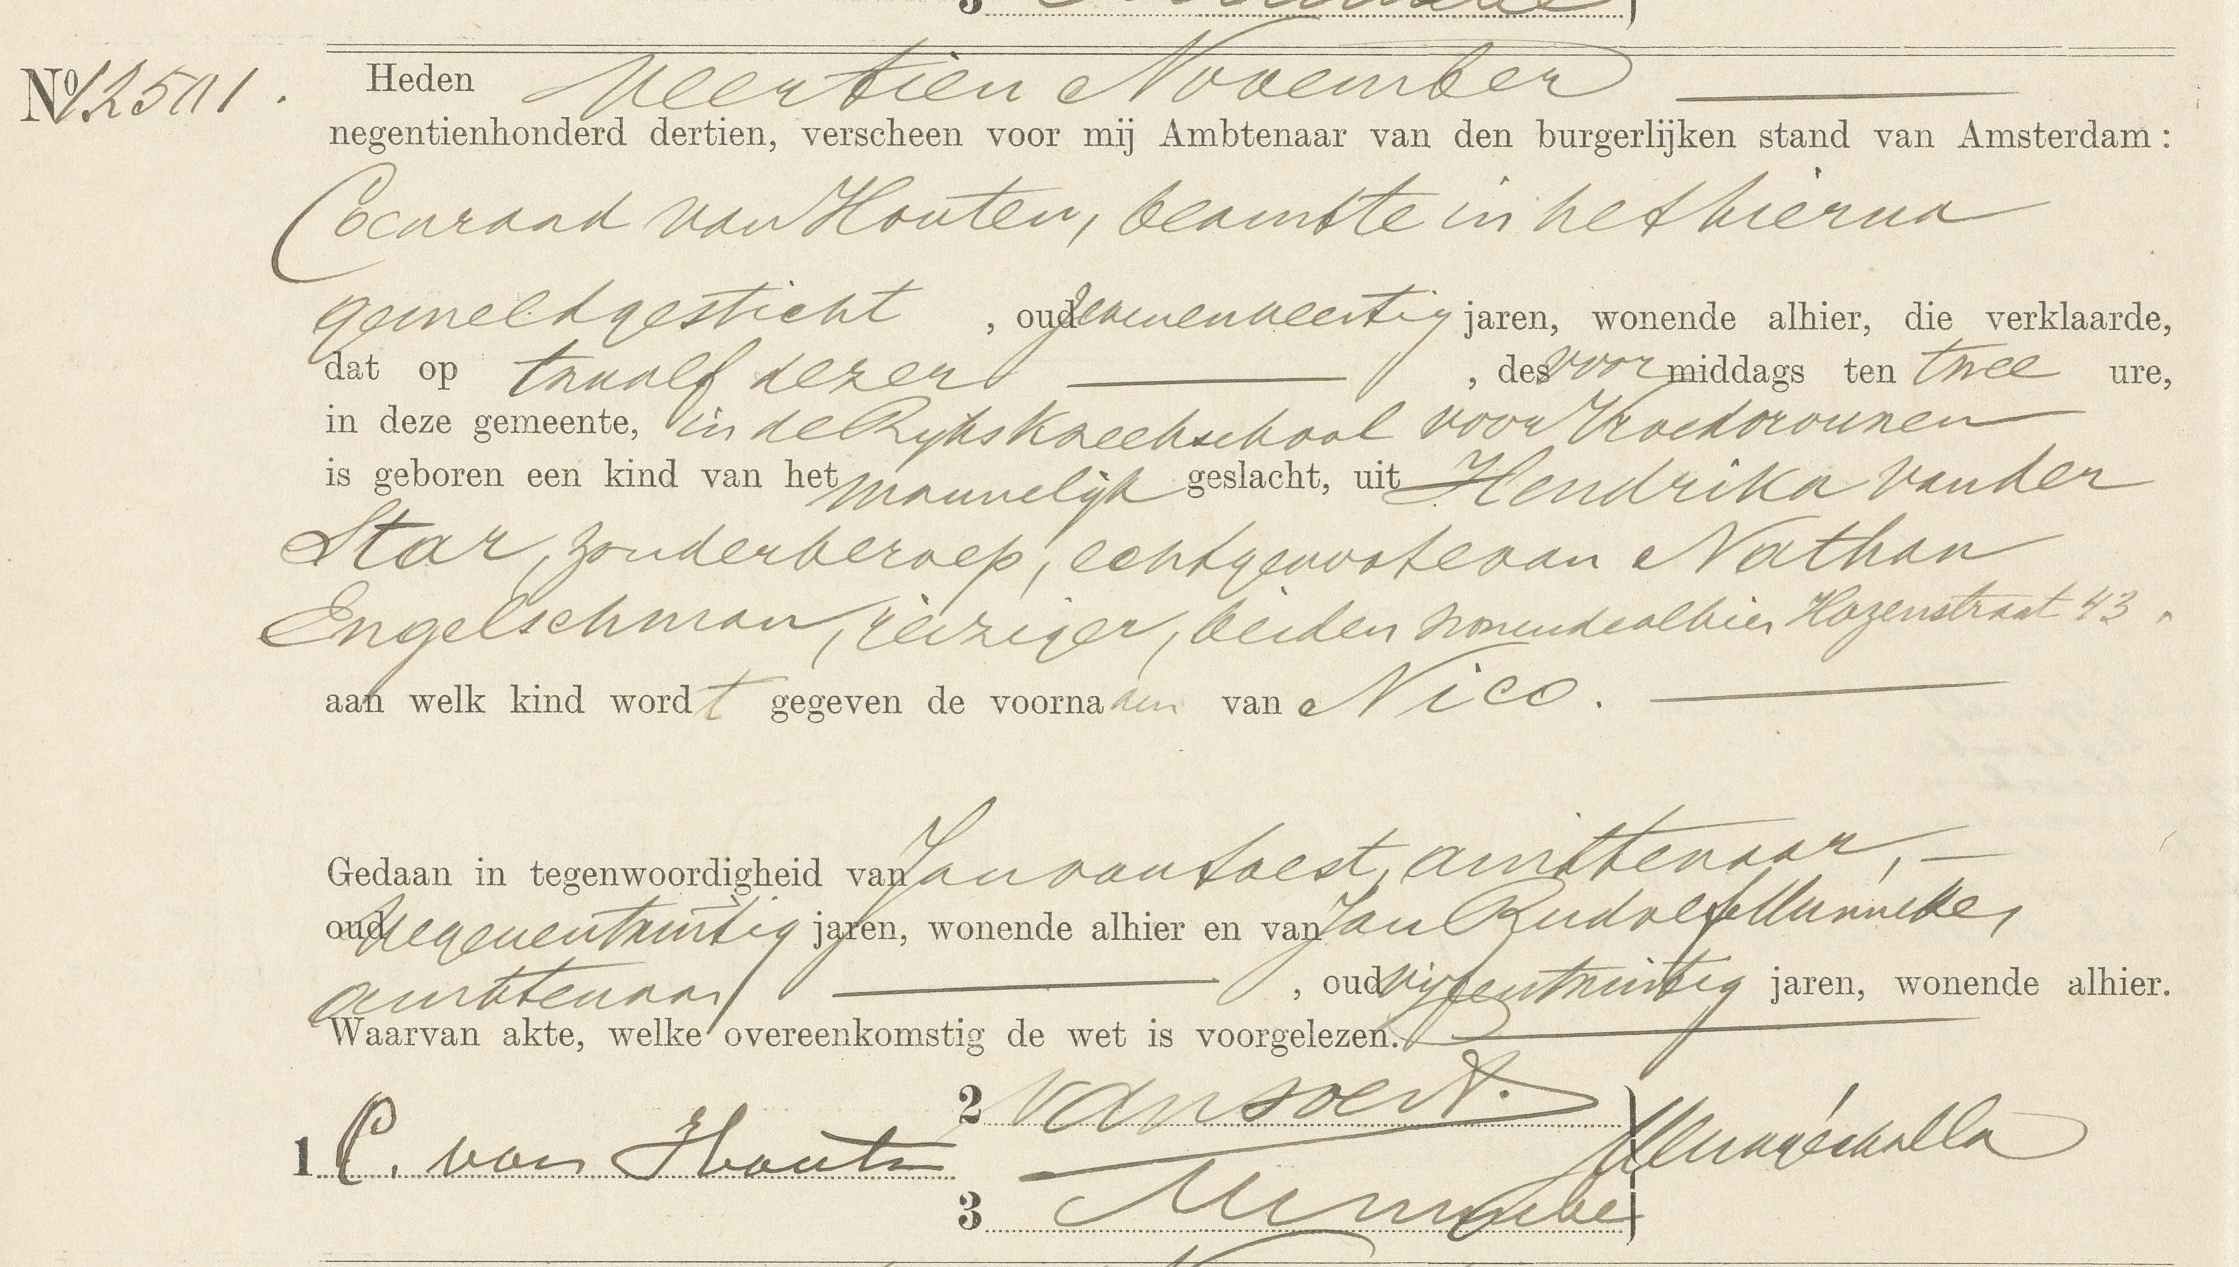 No 12501. Heden veertien November
negentienhonderd dertien, verscheen voor mij Ambtenaar van den burgerlijken stand van Amsterdam:
Coenraad van Houten, beambte in het hierna
gemeld gesticht, oud zevenenveertig jaren, wonende alhier, die verklaarde,
dat op twaalf dezer, des voormiddags ten twee ure,
in deze gemeente, in de Rijks Kweekschool voor Vroedvrouwen
is geboren een kind van het mannelijk geslacht, uit Hendrika van der
Star, zonder beroep, echtgenoote van Nathan
Engelschman, reiziger, beiden wonende alhier Hazenstraat 43.
aan welk kind wordt gegeven de voornaam van Nico.
Gedaan in tegenwoordigheid van Jan van Soest, ambtenaar,
oud negenentwintig jaren, wonende alhier en van Jan Rudolf Munneke,
ambtenaar, oud vijfentwintig jaren, wonende alhier.
Waarvan akte, welke overeenkomstig de wet is voorgelezen.
2 van Soest.
1 C. van Houten
3 Munneke